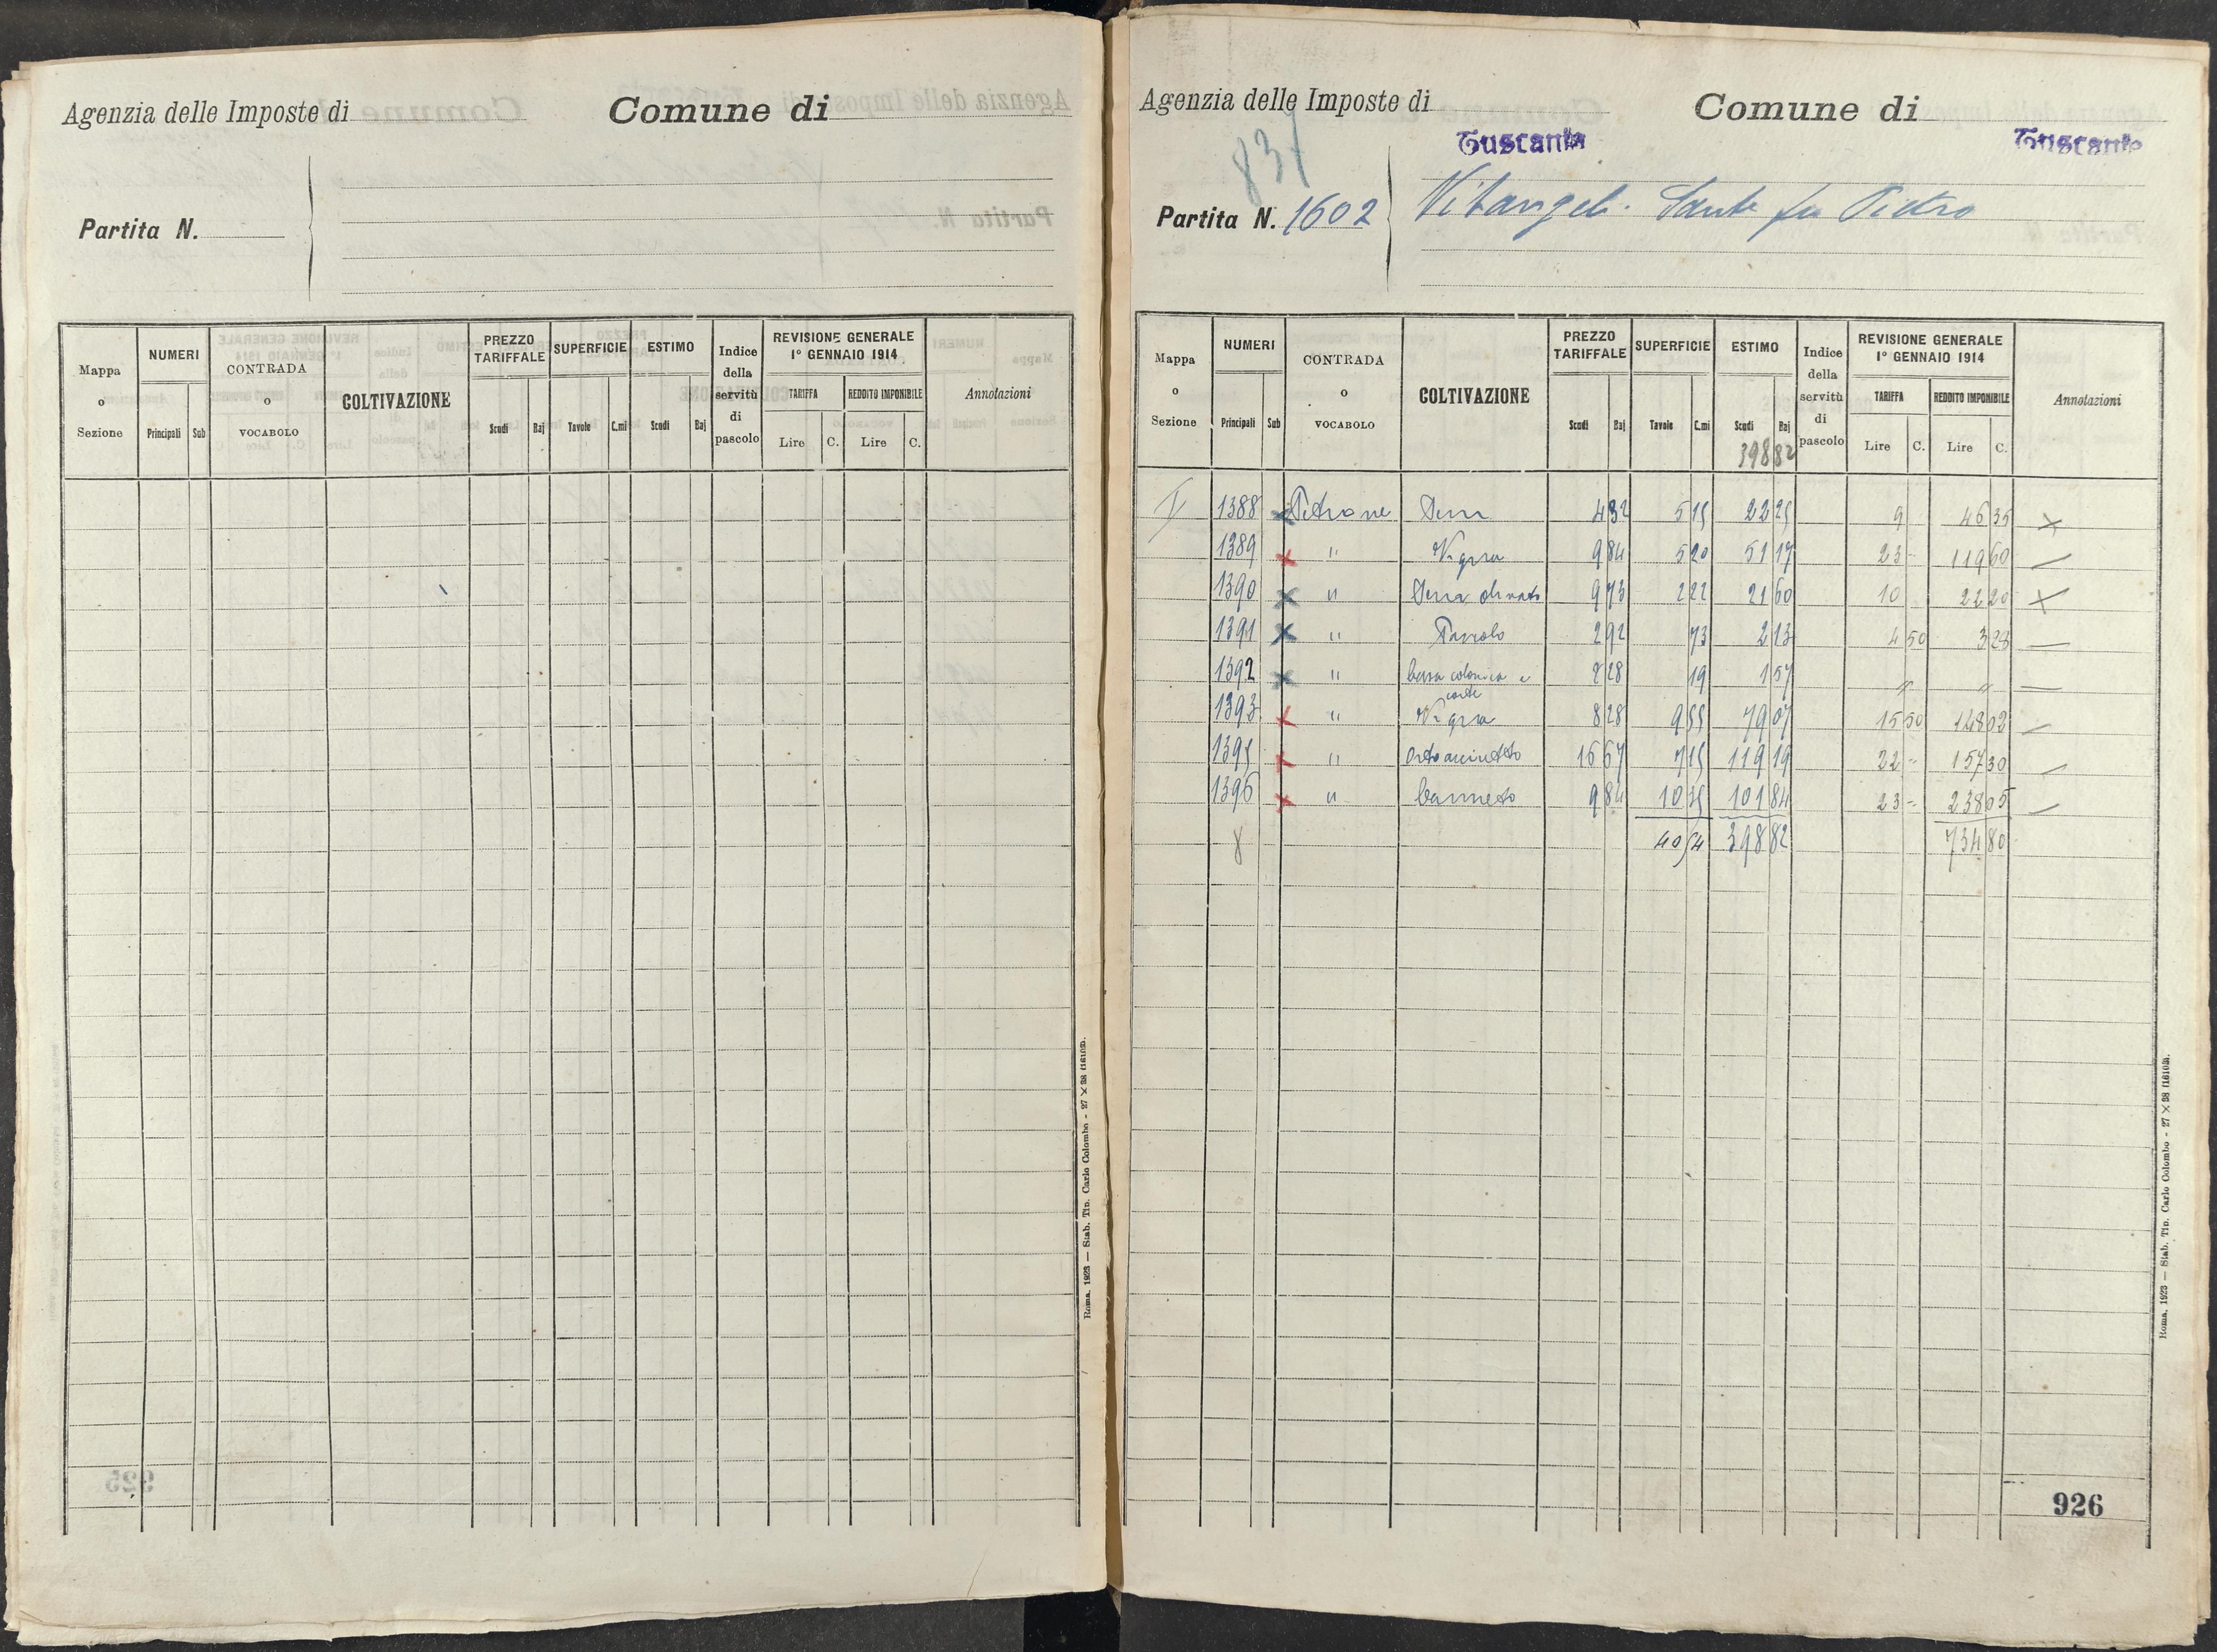 Agenzia delle Imposte di
Comune di
Partita N.
Mappa o Sezione
NUMERI
Principali
Sub
CONTRADA o VOCABOLO
COLTIVAZIONE
PREZZO TARIFFALE
Scudi
Baj
SUPERFICIE
Tavole
C.mi
ESTIMO
Scudi
Baj
Indice della servitù di pascolo
REVISIONE GENERALE
1° GENNAIO 1914
TARIFFA
Lire
C.
REDDITO IMPONIBILE
Lire
C.
Annotazioni
Roma, 1923 — Stab. Tip. Carlo Colombo - 27 × 38 (16102).
925
Agenzia delle Imposte di
Tuscania
Comune di
Tuscania
837
Partita N. 1602
Vitangeli Sante fu Pietro
Mappa o Sezione
NUMERI
Principali
Sub
CONTRADA o VOCABOLO
COLTIVAZIONE
PREZZO TARIFFALE
Scudi
Baj
SUPERFICIE
Tavole
C.mi
ESTIMO
Scudi
Baj
398 82
Indice della servitù di pascolo
REVISIONE GENERALE
1° GENNAIO 1914
TARIFFA
Lire
C.
REDDITO IMPONIBILE
Lire
C.
Annotazioni
1388 x Petrone 4 32 5 15 22 25 9 46 35 x
1389 x " Vigna 9 84 5 20 51 17 23 - 119 60 —
1390 x " Terra olivata 9 73 2 22 21 60 10 22 20 x
1391 x " Pascolo 2 92 73 2 13 4 50 3 28 —
1392 x " Casa colonica e corte 8 28 19 1 57 " " —
1393 x " Vigna 8 28 9 55 79 07 15 50 148 02 —
1395 x " 16 67 7 15 119 19 22 - 157 30 —
1396 x " Canneto 9 84 10 35 101 84 23 - 238 05 —
8 40 54 398 82 734 80
Roma, 1923 — Stab. Tip. Carlo Colombo - 27 × 38 (16102).
926